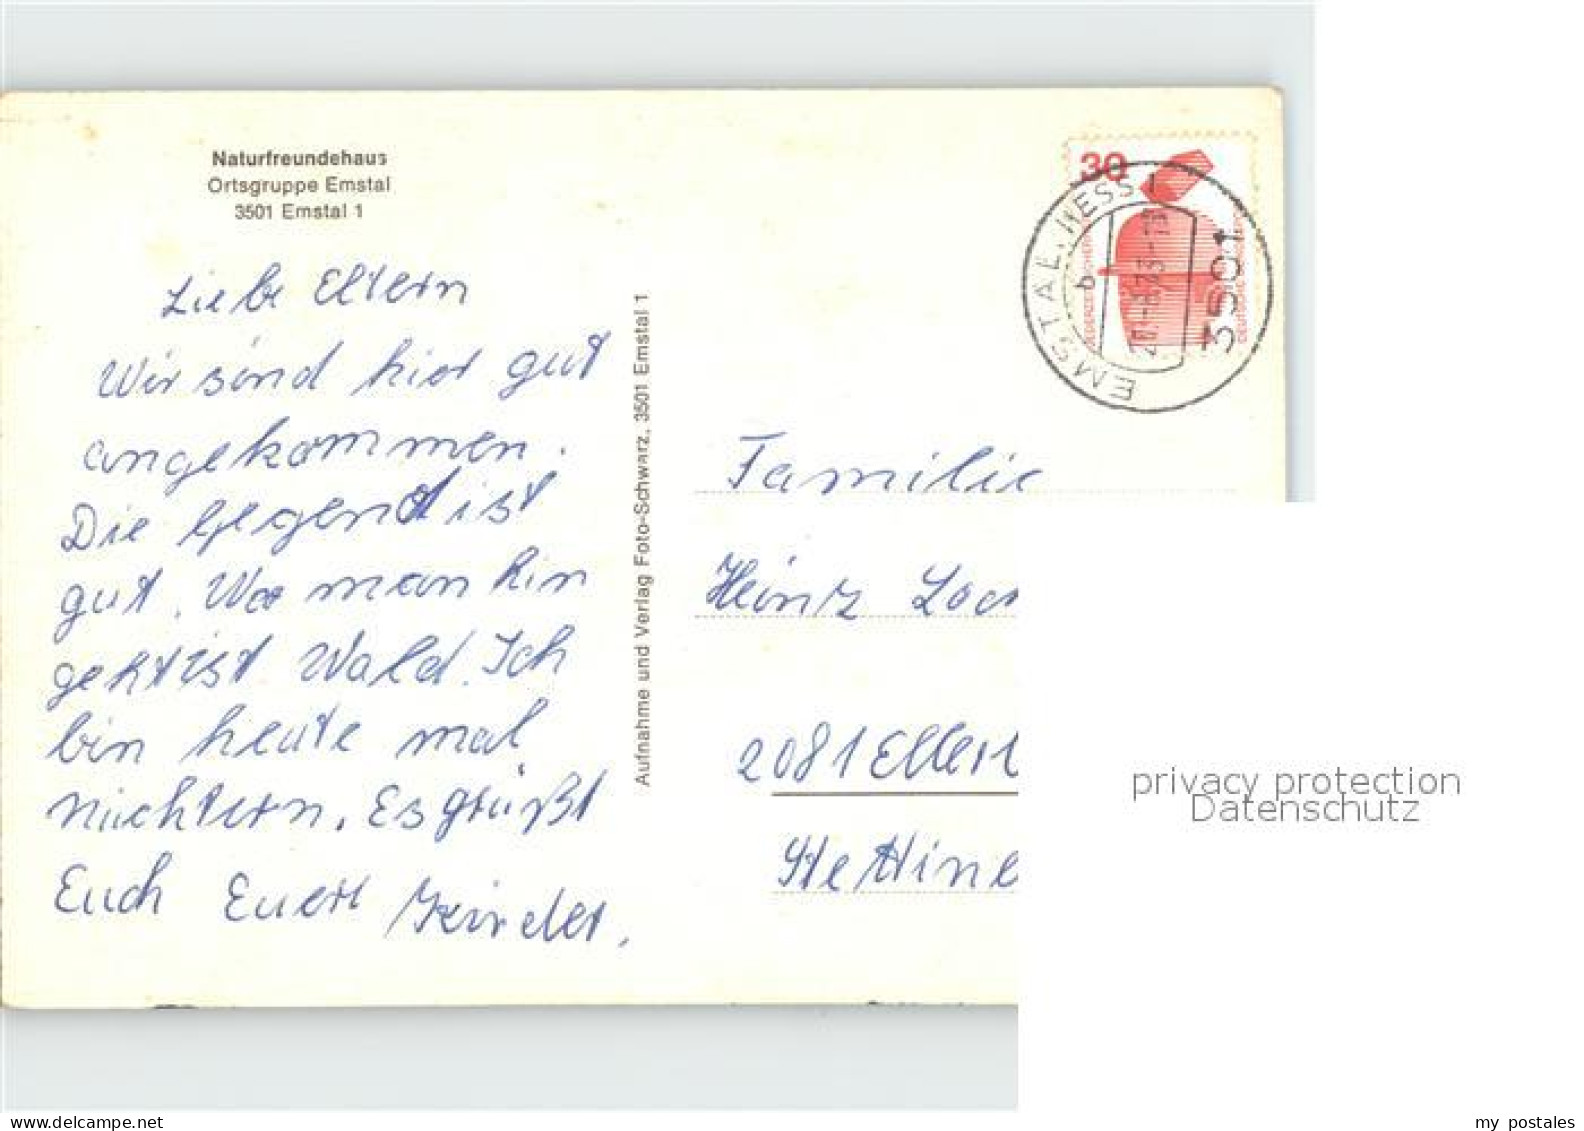 Naturfreundehaus
Ortsgruppe Emstal
3501 Emstal 1
Liebe Eltern
Wir sind hier gut
angekommen.
Die Gegend ist
gut. Wo man hin
geht ist Wald. Ich
bin heute mal
nüchtern. Es grüßt
Euch Eure Kinder.
Aufnahme und Verlag Foto-Schwarz, 3501 Emstal 1
30
JEDERZEIT SICHERHEIT
DEUTSCHE BUNDESPOST
EMSTAL, HESS 1
b
3501
Familie
Heinz
2081 Ellert
Stettine
privacy protection
Datenschutz
delcampe.net
my_postales